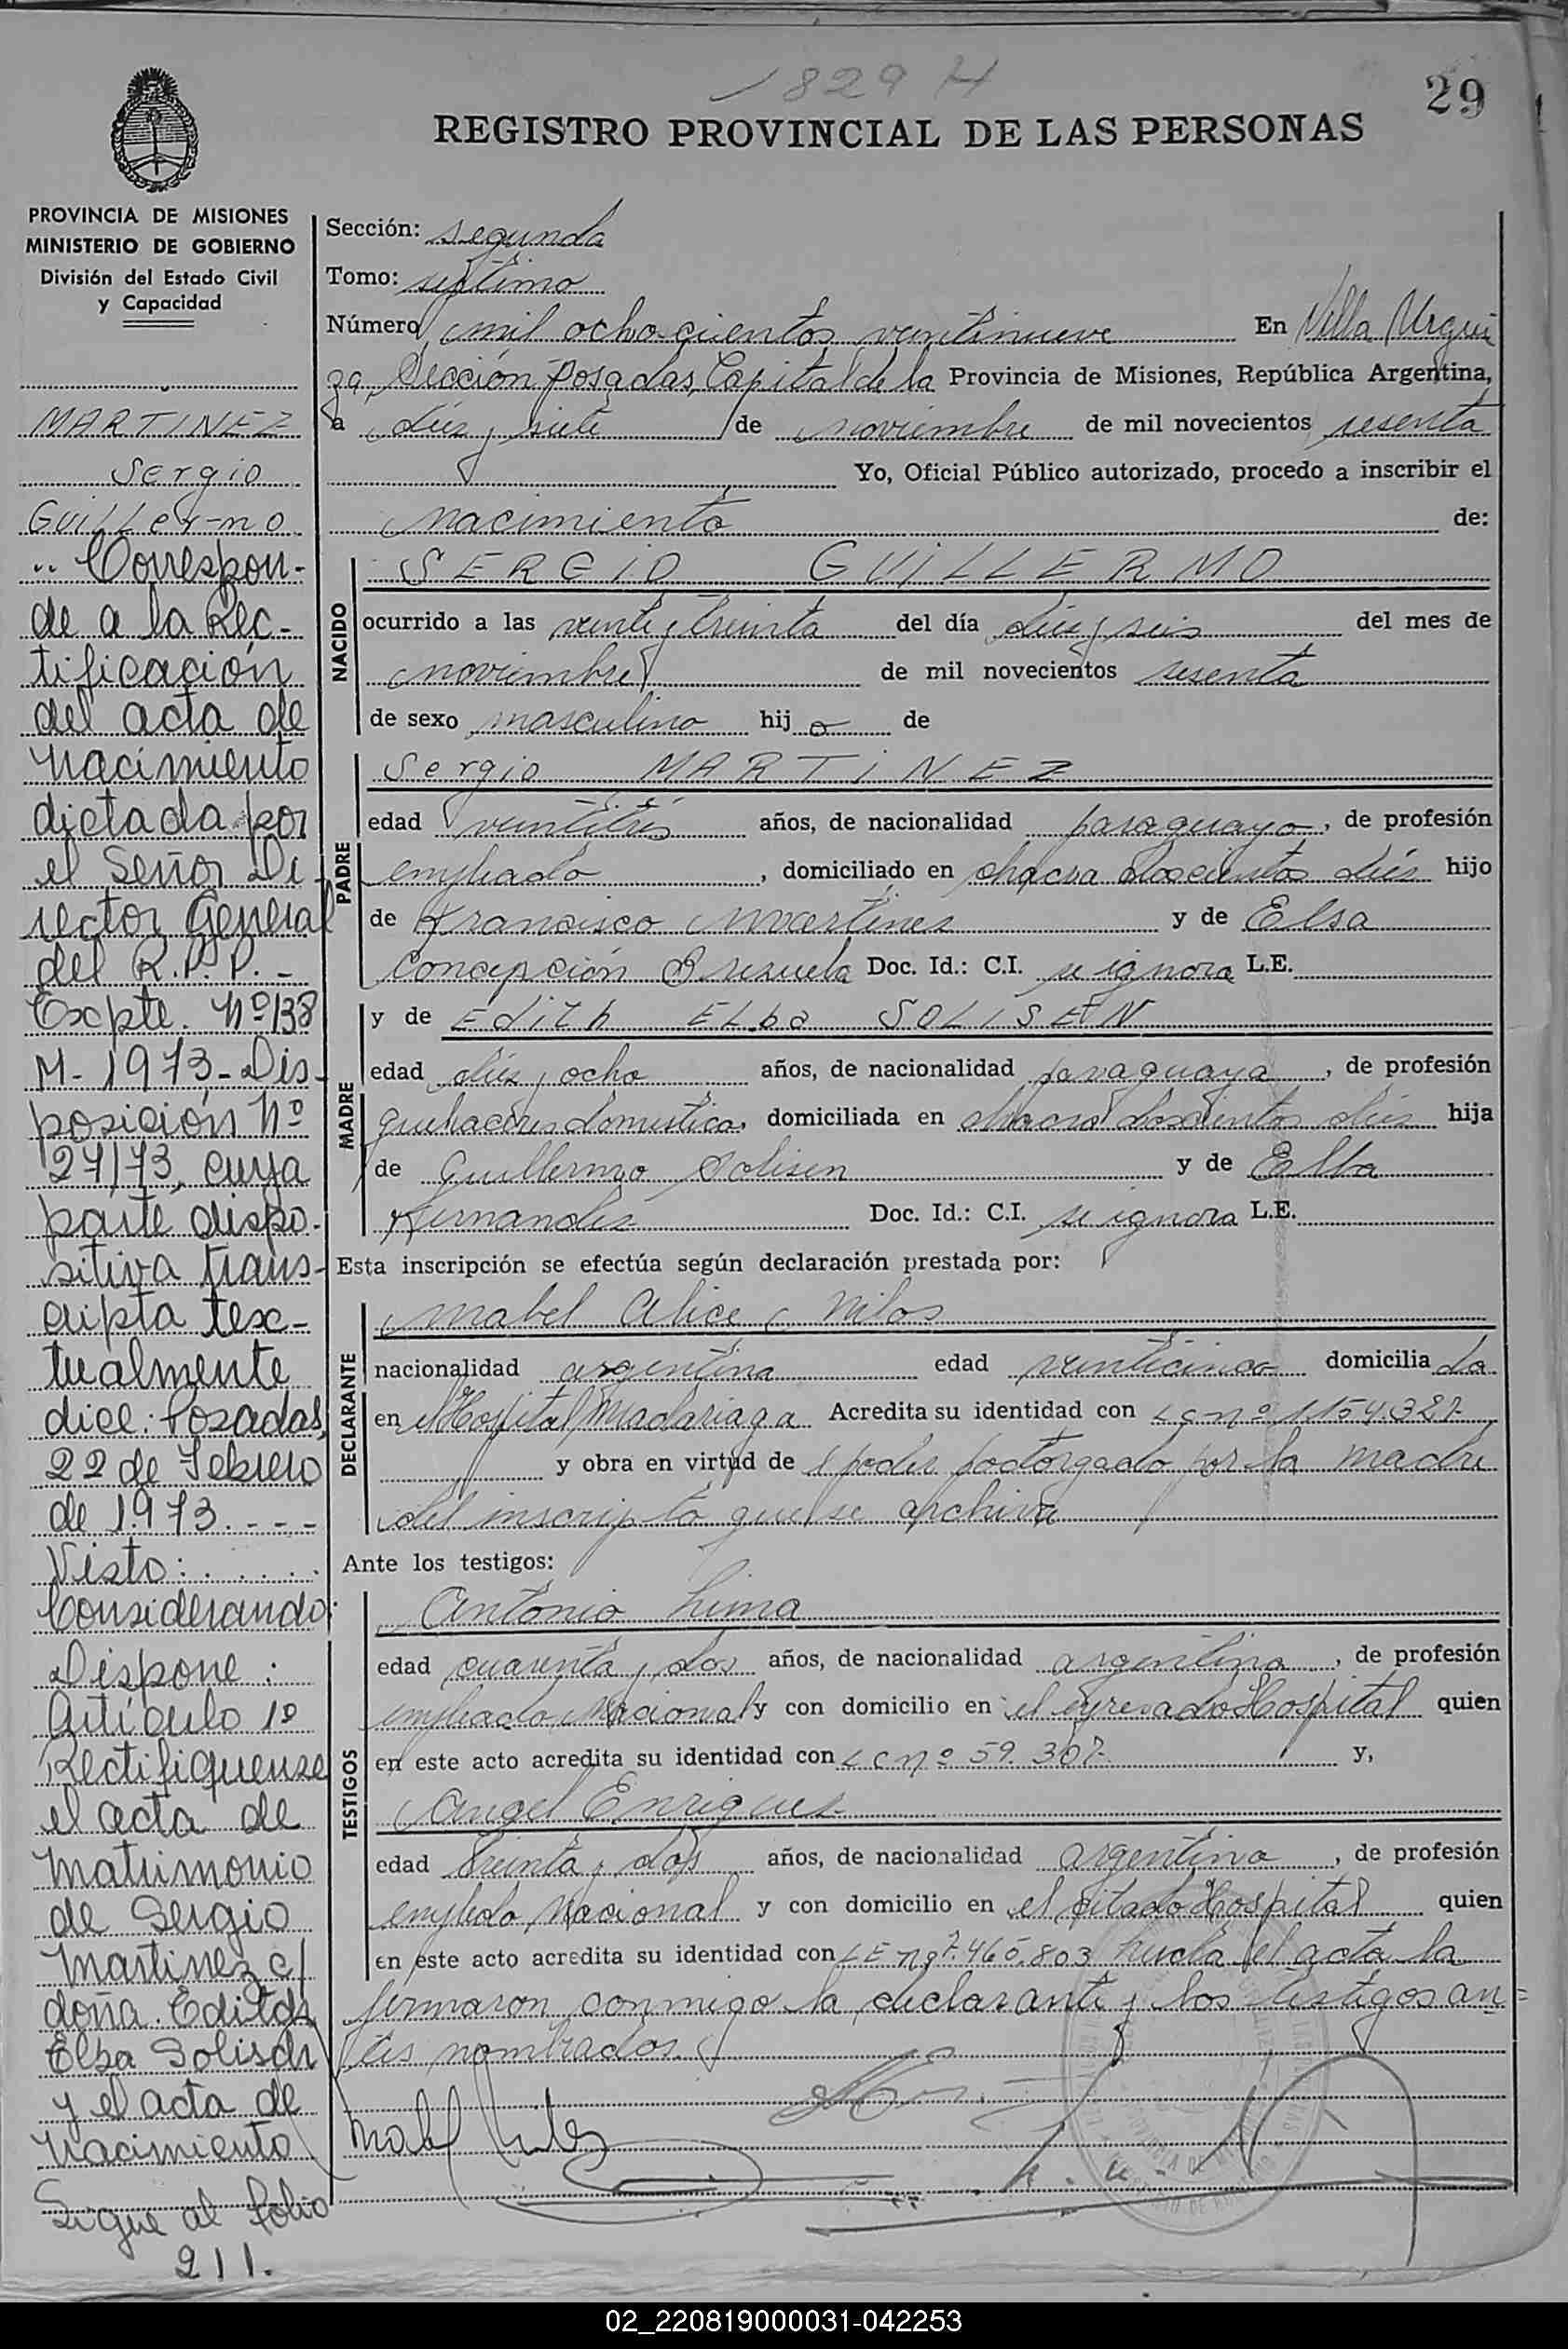 1829 H
29
REGISTRO PROVINCIAL DE LAS PERSONAS
PROVINCIA DE MISIONES
MINISTERIO DE GOBIERNO
División del Estado Civil
y Capacidad
MARTINEZ
Sergio
Guillermo
Correspon-
de a la Rec-
tificación
del acta de
nacimiento
dictada por
el Señor Di-
rector General
del R.P.P.-
Expte. Nº 138
M-1973-Dis-
posición Nº
27/73, cuya
parte dispo-
sitiva trans-
cripta tex-
tualmente
dice: Posadas,
22 de Febrero
de 1973.---
Visto:......
Considerando:
Dispone:
Artículo 1º
Rectifiquense
el acta de
matrimonio
de Sergio
Martinez c/
doña. Edith
Elba Solisch
y el acta de
nacimiento
Sigue al folio
211.
Sección: segunda
Tomo: septimo
Número mil ochocientos veintinueve En Villa Urqui
za, Sección Posadas, Capital de la Provincia de Misiones, República Argentina,
a diez y siete de noviembre de mil novecientos sesenta
Yo, Oficial Público autorizado, procedo a inscribir el
nacimiento de:
NACIDO
SERGIO GUILLERMO
ocurrido a las veinte y treinta del día diez y seis del mes de
noviembre de mil novecientos sesenta
de sexo masculino hijo de
PADRE
Sergio MARTINEZ
edad veintitrés años, de nacionalidad paraguayo, de profesión
empleado, domiciliado en chacra doscientos diez hijo
de Francisco Martinez y de Elsa
Concepción Doc. Id.: C.I. se ignora L.E.
MADRE
y de Edith ELba SOLISEN
edad diez y ocho años, de nacionalidad paraguaya, de profesión
quehaceres domestica, domiciliada en chacra doscientos diez hija
de Guillermo Solisen y de Elba
Hernandez Doc. Id.: C.I. se ignora L.E.
Esta inscripción se efectúa según declaración prestada por:
DECLARANTE
Mabel Alice Nilos
nacionalidad argentina edad veinticinco domiciliada
en el Hospital Madariaga Acredita su identidad con L C nº 1.154.327
y obra en virtud de poder otorgado por la madre
del inscripto que se archiva
Ante los testigos:
TESTIGOS
Antonio Lima
edad cuarenta y dos años, de nacionalidad argentina, de profesión
empleado Nacional y con domicilio en el Hospital quien
en este acto acredita su identidad con L C nº 59.307 y,
Angel Enriquez
edad treinta y dos años, de nacionalidad argentina, de profesión
empledo Nacional y con domicilio en el citado Hospital quien
en este acto acredita su identidad con L E nº 7.465.803 el acta la
firmaron conmigo la declarante y los testigos an=
tes nombrados.
02_220819000031-042253